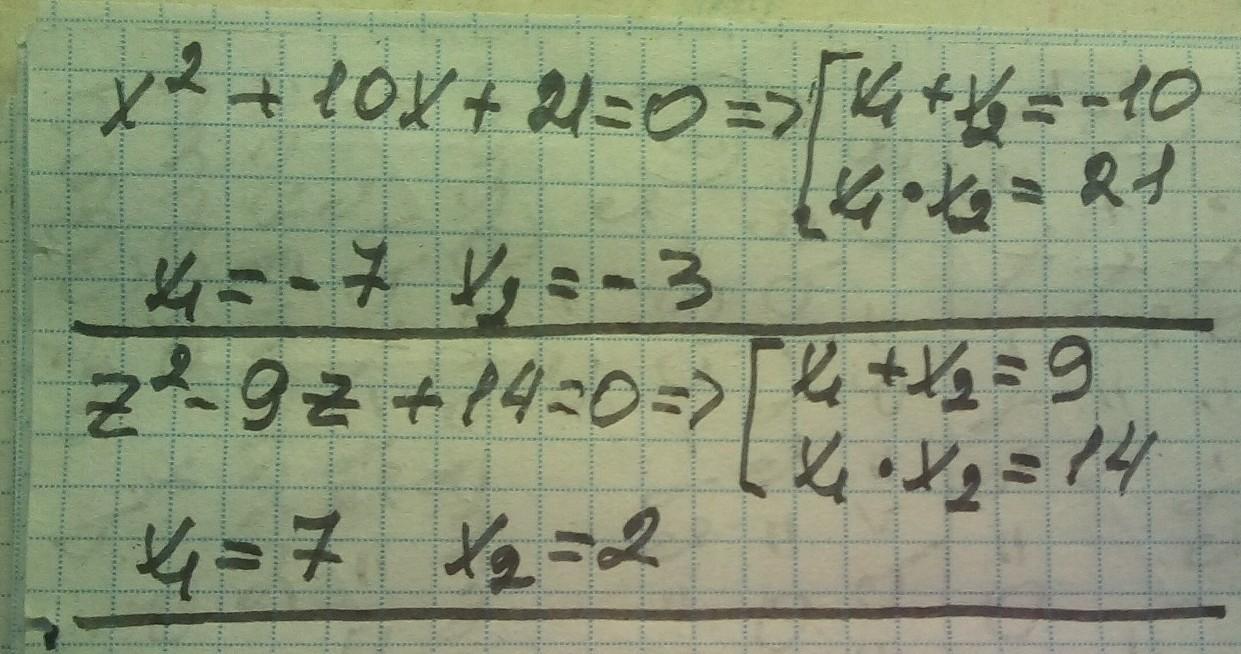 x² + 10x + 21 = 0 => [ x₁ + x₂ = -10
x₁ · x₂ = 21
x₁ = -7 x₂ = -3
z² - 9z + 14 = 0 => [ x₁ + x₂ = 9
x₁ · x₂ = 14
x₁ = 7 x₂ = 2